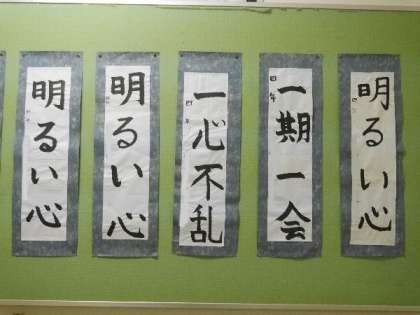 明るい心
明るい心
一心不乱
四年
一期一会
四年
明るい心